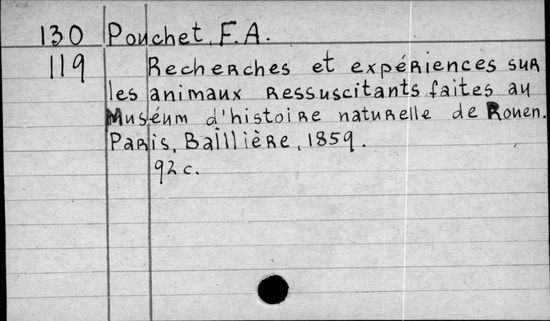 130 Pouchet, F.A.
119 Recherches et expériences sur
les animaux ressuscitants faites au
Muséum d'histoire naturelle de Rouen.
Paris, Baillière, 1859.
92 c.